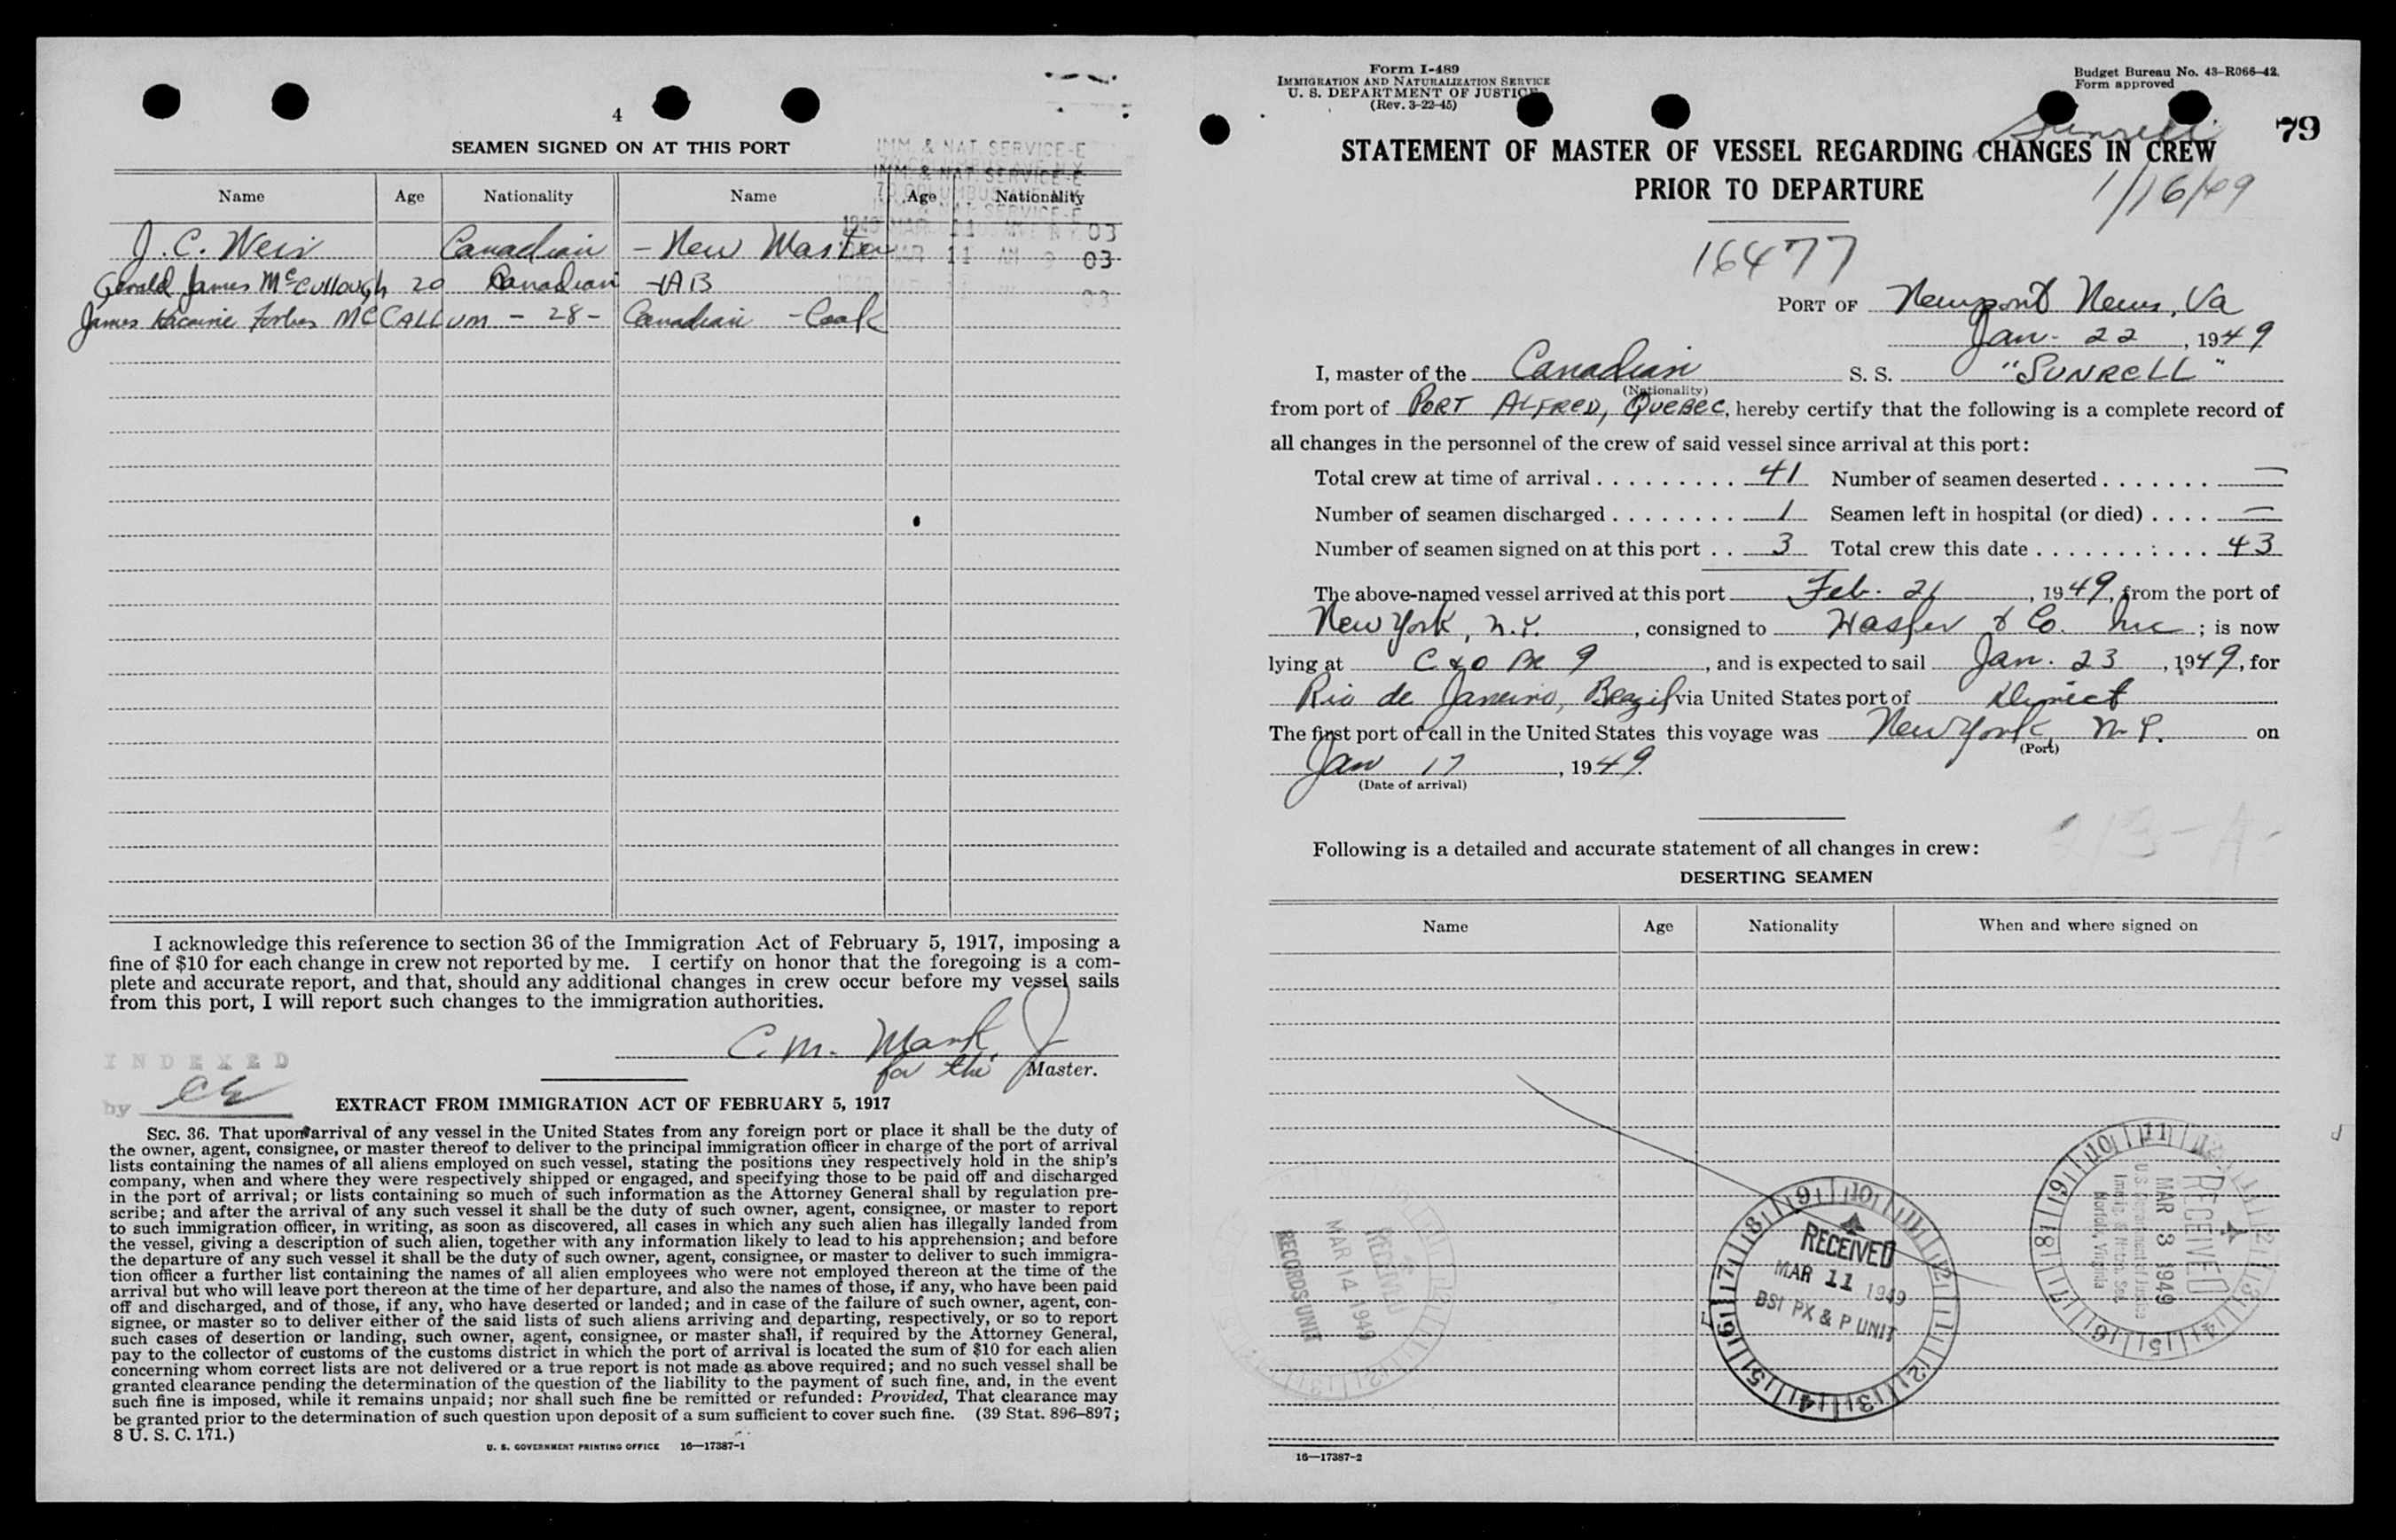 4
SEAMEN SIGNED ON AT THIS PORT
IMM. & NAT. SERVICE-E
IMM. & NAT. SERVICE-E
Name Age Nationality Name Age Nationality
J. C. Weir Canadian - New Master
Gerald James McCullough 20 Canadian - AB
James Forbes McCALLUM - 28 - Canadian - Cook
1949 MAR 11 AM 9 03
I acknowledge this reference to section 36 of the Immigration Act of February 5, 1917, imposing a
fine of $10 for each change in crew not reported by me. I certify on honor that the foregoing is a com-
plete and accurate report, and that, should any additional changes in crew occur before my vessel sails
from this port, I will report such changes to the immigration authorities.
C. M. Mark
for the Master.
INDEXED
by
EXTRACT FROM IMMIGRATION ACT OF FEBRUARY 5, 1917
SEC. 36. That upon arrival of any vessel in the United States from any foreign port or place it shall be the duty of
the owner, agent, consignee, or master thereof to deliver to the principal immigration officer in charge of the port of arrival
lists containing the names of all aliens employed on such vessel, stating the positions they respectively hold in the ship's
company, when and where they were respectively shipped or engaged, and specifying those to be paid off and discharged
in the port of arrival; or lists containing so much of such information as the Attorney General shall by regulation pre-
scribe; and after the arrival of any such vessel it shall be the duty of such owner, agent, consignee, or master to report
to such immigration officer, in writing, as soon as discovered, all cases in which any such alien has illegally landed from
the vessel, giving a description of such alien, together with any information likely to lead to his apprehension; and before
the departure of any such vessel it shall be the duty of such owner, agent, consignee, or master to deliver to such immigra-
tion officer a further list containing the names of all alien employees who were not employed thereon at the time of the
arrival but who will leave port thereon at the time of her departure, and also the names of those, if any, who have been paid
off and discharged, and of those, if any, who have deserted or landed; and in case of the failure of such owner, agent, con-
signee, or master so to deliver either of the said lists of such aliens arriving and departing, respectively, or so to report
such cases of desertion or landing, such owner, agent, consignee, or master shall, if required by the Attorney General,
pay to the collector of customs of the customs district in which the port of arrival is located the sum of $10 for each alien
concerning whom correct lists are not delivered or a true report is not made as above required; and no such vessel shall be
granted clearance pending the determination of the question of the liability to the payment of such fine, and, in the event
such fine is imposed, while it remains unpaid; nor shall such fine be remitted or refunded: Provided, That clearance may
be granted prior to the determination of such question upon deposit of a sum sufficient to cover such fine. (39 Stat. 896–897;
8 U. S. C. 171.)
U. S. GOVERNMENT PRINTING OFFICE 16—17387-1
Form I-489
IMMIGRATION AND NATURALIZATION SERVICE
U. S. DEPARTMENT OF JUSTICE
(Rev. 3-22-45)
Budget Bureau No. 43-R066-42.
Form approved
Sunrell
79
STATEMENT OF MASTER OF VESSEL REGARDING CHANGES IN CREW
PRIOR TO DEPARTURE
1/16/49
16477
PORT OF Newport News, Va
Jan. 22, 1949
I, master of the Canadian S. S. "SUNRELL"
(Nationality)
from port of PORT ALFRED, QUEBEC, hereby certify that the following is a complete record of
all changes in the personnel of the crew of said vessel since arrival at this port:
Total crew at time of arrival . . . . . . . . . 41 Number of seamen deserted . . . . . . . —
Number of seamen discharged . . . . . . . . 1 Seamen left in hospital (or died) . . . . —
Number of seamen signed on at this port . . 3 Total crew this date . . . . . . . . . . . 43
The above-named vessel arrived at this port Feb. 21, 1949, from the port of
New York, N.Y., consigned to & Co. Inc; is now
lying at C & O Pr 9, and is expected to sail Jan. 23, 1949, for
Rio de Janeiro, Brazil via United States port of Direct
The first port of call in the United States this voyage was New York, N.Y. on
(Port)
Jan 17, 1949.
(Date of arrival)
Following is a detailed and accurate statement of all changes in crew:
DESERTING SEAMEN
Name Age Nationality When and where signed on
RECEIVED
MAR 14 1949
RECORDS UNIT
RECEIVED
MAR 11 1949
BSI PX & P UNIT
RECEIVED
MAR 3 1949
U. S. Department of Justice
Immig. & Natzn. Ser.
Norfolk, Virginia
16—17387-2